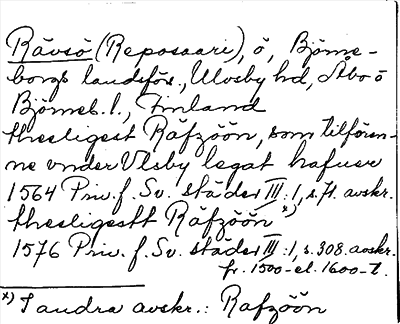 Rävsö (Reposaari), ö, Björne-
borgs landsförs., Ulvsby hd, Åbo o
Björneb. l., Finland
thesligest Räfzöön, som tilförin-
ne vnder Vlsby legat hafuer
1564 Priv. f. Sv. städer III:1, s. 71. avskr.
thesligestt Räfzöön x)
1576 Priv. f. Sv. städer III:1, s. 308. avskr.
fr. 1500- el. 1600-t.
x) I andra avskr.: Rafzöön